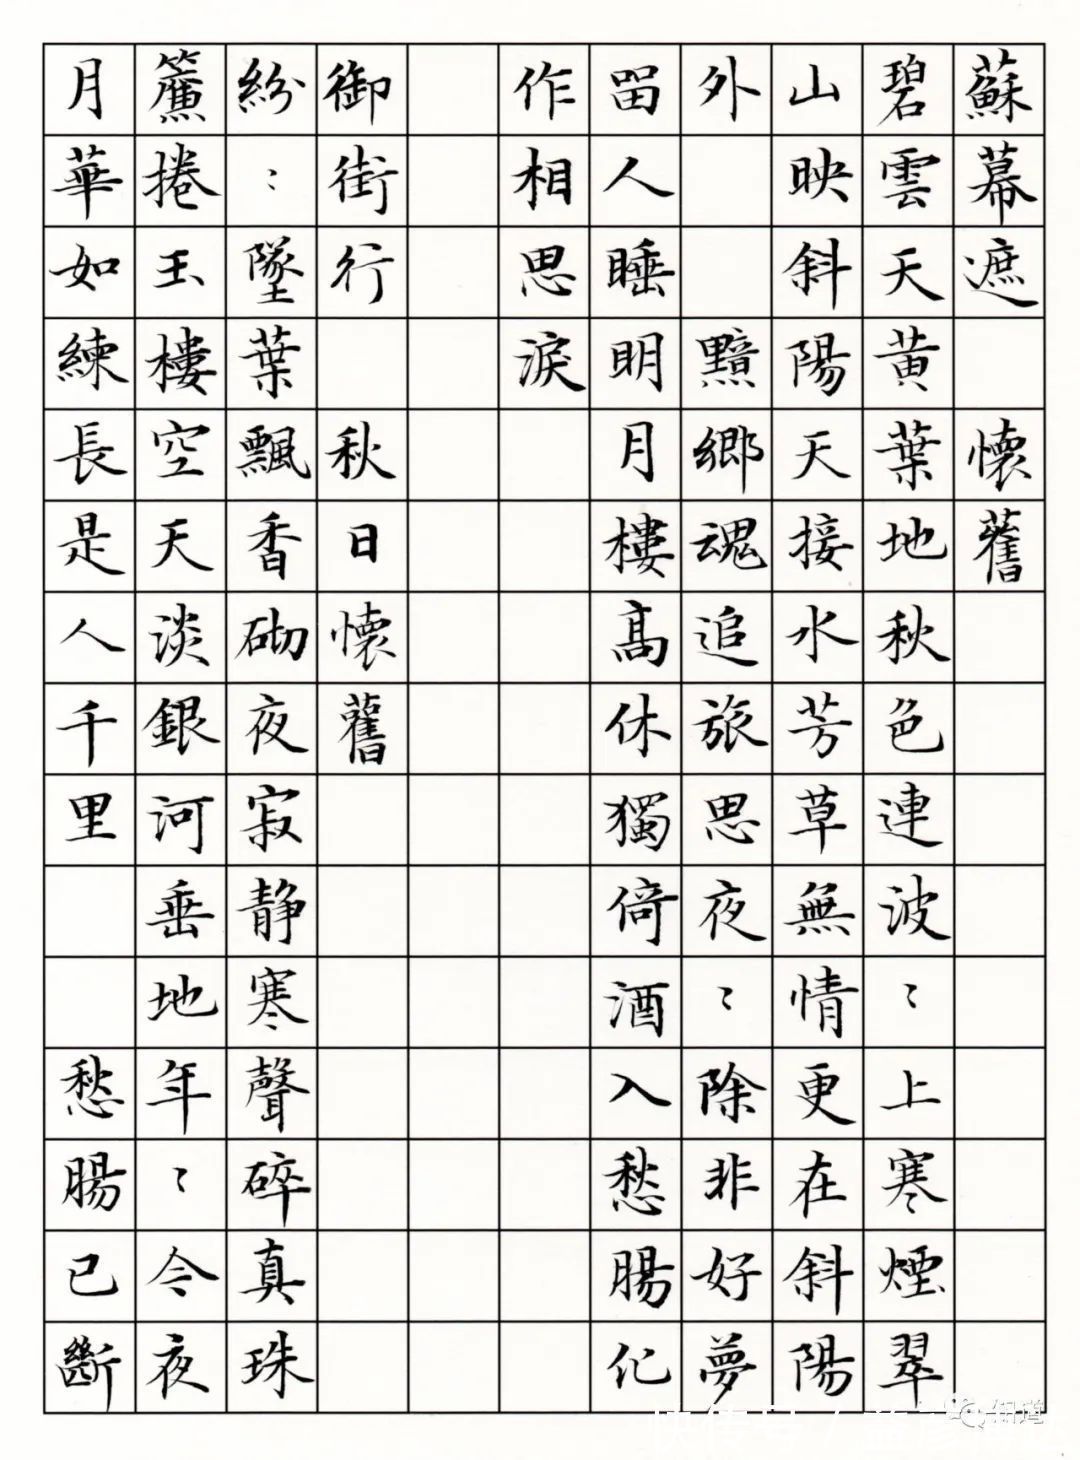 蘇幕遮 懷舊
碧雲天黃葉地秋色連波⺀上寒煙翠
山映斜陽天接水芳草無情更在斜陽
外 黯鄉魂追旅思夜⺀除非好夢
留人睡明月樓高休獨倚酒入愁腸化
作相思淚
御街行 秋日懷舊
紛⺀墜葉飄香砌夜寂靜寒聲碎真珠
簾捲玉樓空天淡銀河垂地年⺀今夜
月華如練長是人千里 愁腸已斷